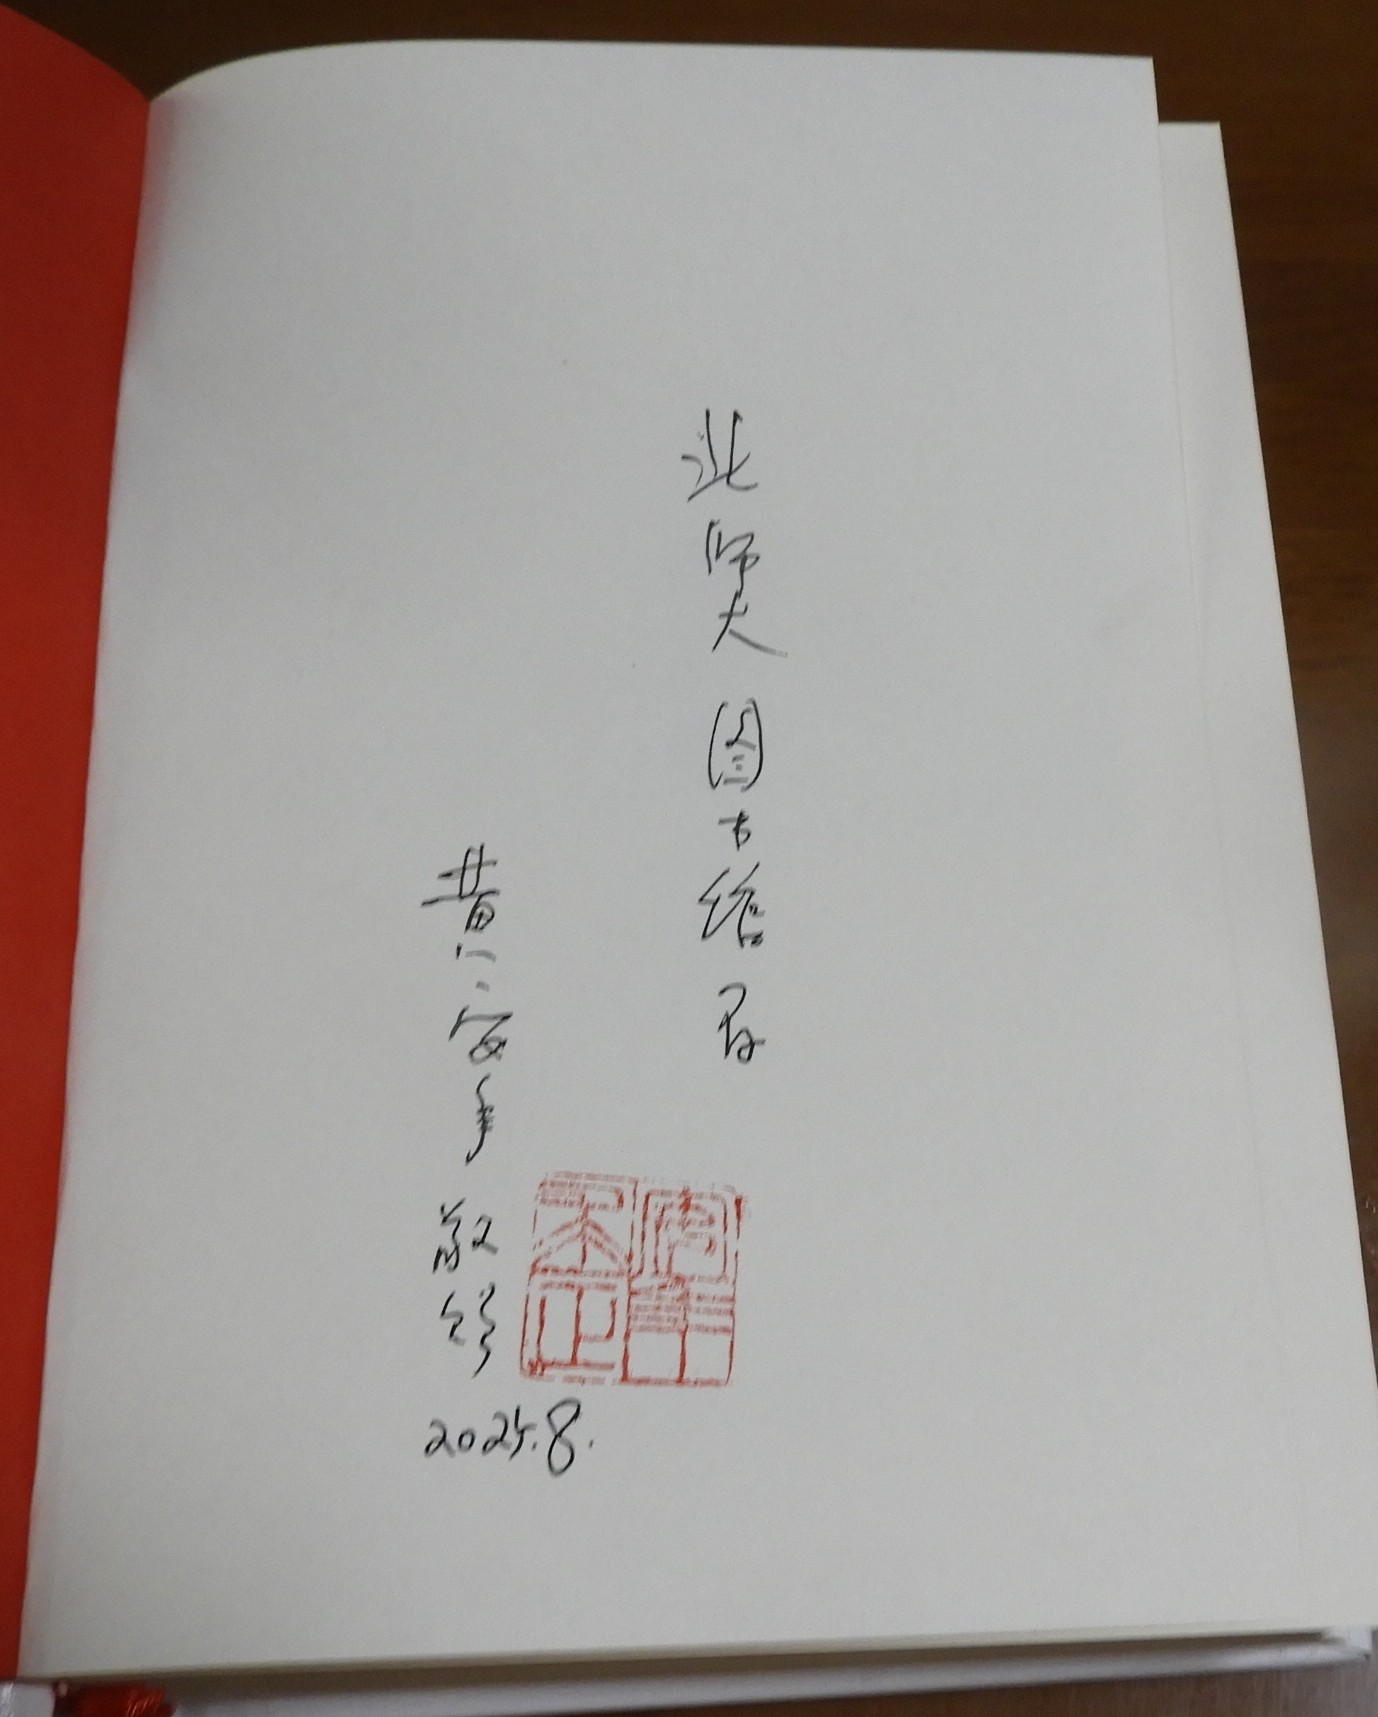 北师大图书馆存
黄安年敬赠
2025.8.